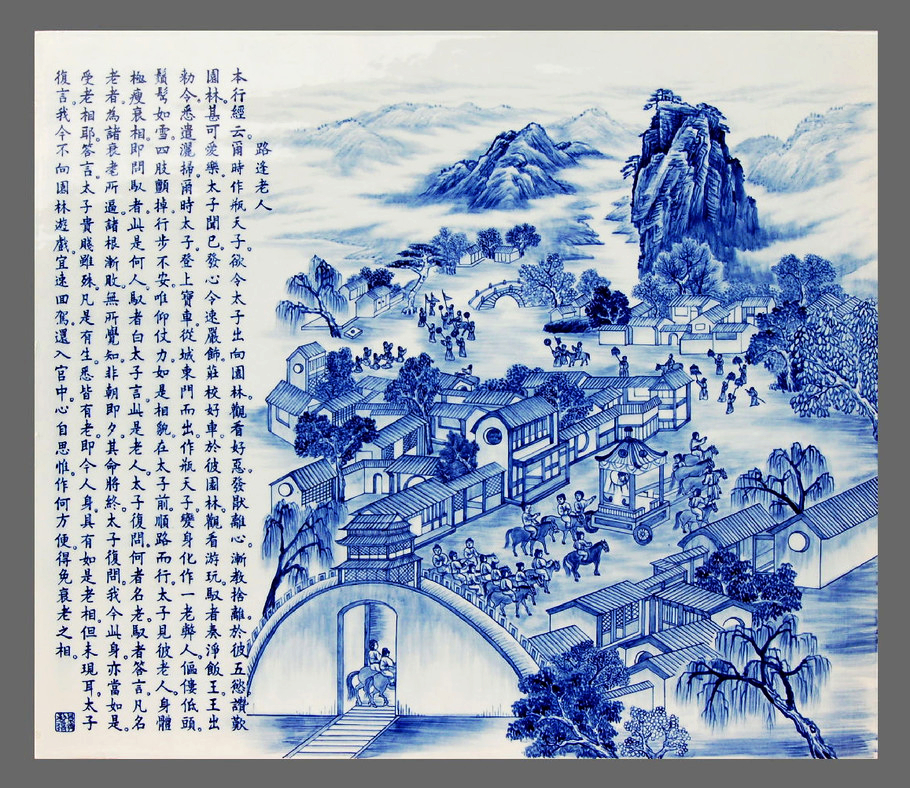 路逢老人
本行經云。爾時作瓶天子。欲令太子出向園林。觀看好惡。發猒離心。漸教捨離於彼五慾。讚歎
園林甚可愛樂太子聞已。發心令速嚴飾莊校好車於彼園林。觀看游玩。馭者奏淨飯王王出
勑令悉遣灑掃。爾時太子。登上寶車。從城東門而出作瓶天子。變身化作一老弊人。傴僂低頭。
鬚髩如雪。四肢顫掉。行步不安。唯仰仗力。如是相貌。在太子前。順路而行。太子見彼老人。身體
極瘦衰相。即問馭者。此是何人。馭者白太子言。此是老人。太子復問。何者名老。馭者答言。凡名
老者。為諸衰耄所逼。諸根漸敗。無所覺知。非朝即夕。其命將終。太子復問。我今此身。亦當如是
受老相耶。答言。太子貴賤雖殊。凡是有生。悉皆有老。即今人身。具有如是老相。但未現耳。太子
復言。我今不向園林遊戲。宜速回駕。還入宮中。心自思惟。作何方便。得免衰老之相。